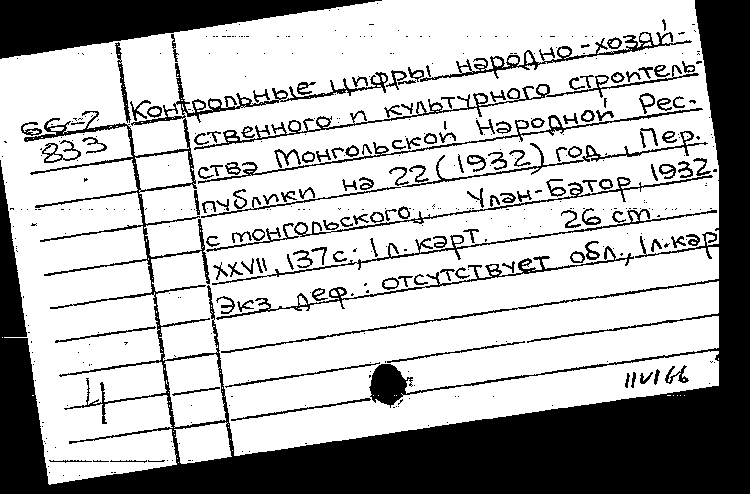 Контрольные цифры народно-хозяй-
66-7
ственного и культурного строитель-
833
ства Монгольской Народной Рес-
публики на 22 (1932) год. Пер.
с монгольского, Улан-Батор, 1932.
XXVII, 137 с.; 1 л. карт. 26 cm.
Экз. деф.: отсутствует обл., 1 л. кар
4
11 VI 66